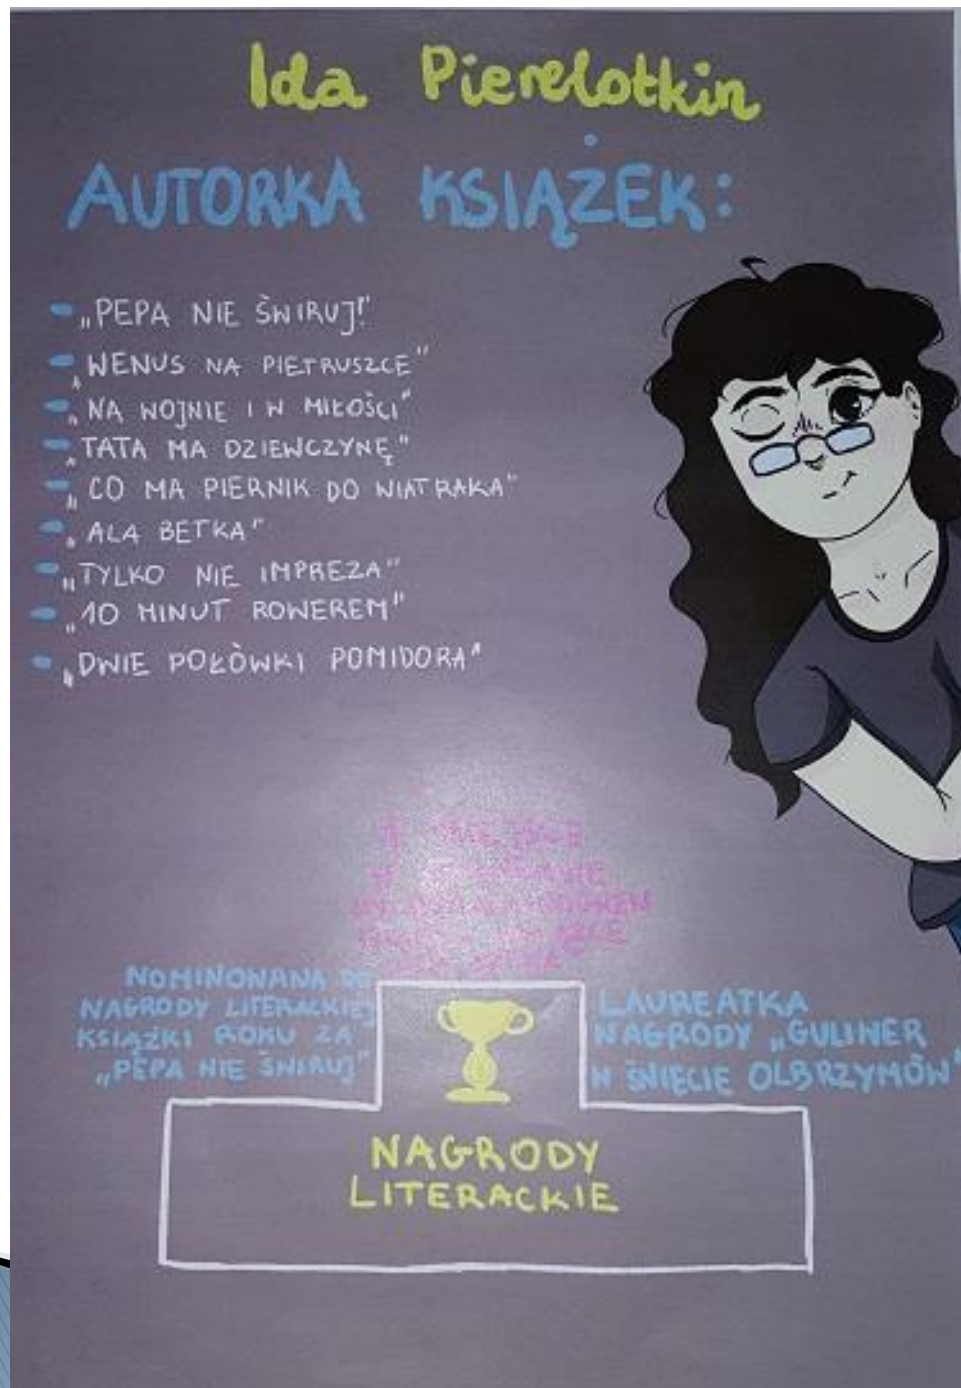 Ida Pierelotkin
AUTORKA KSIĄŻEK:
„PEPA NIE ŚWIRUJ!"
„WENUS NA PIETRUSZCE"
„NA WOJNIE I W MIŁOŚCI"
„TATA MA DZIEWCZYNĘ"
„CO MA PIERNIK DO WIATRAKA"
„ALA BETKA"
„TYLKO NIE IMPREZA"
„10 MINUT ROWEREM"
„DWIE POŁÓWKI POMIDORA"
NOMINOWANA DO
NAGRODY LITERACKIEJ
KSIĄŻKI ROKU ZA
„PEPA NIE ŚWIRUJ"
LAUREATKA
NAGRODY „GULIWER
W ŚWIECIE OLBRZYMÓW"
NAGRODY
LITERACKIE